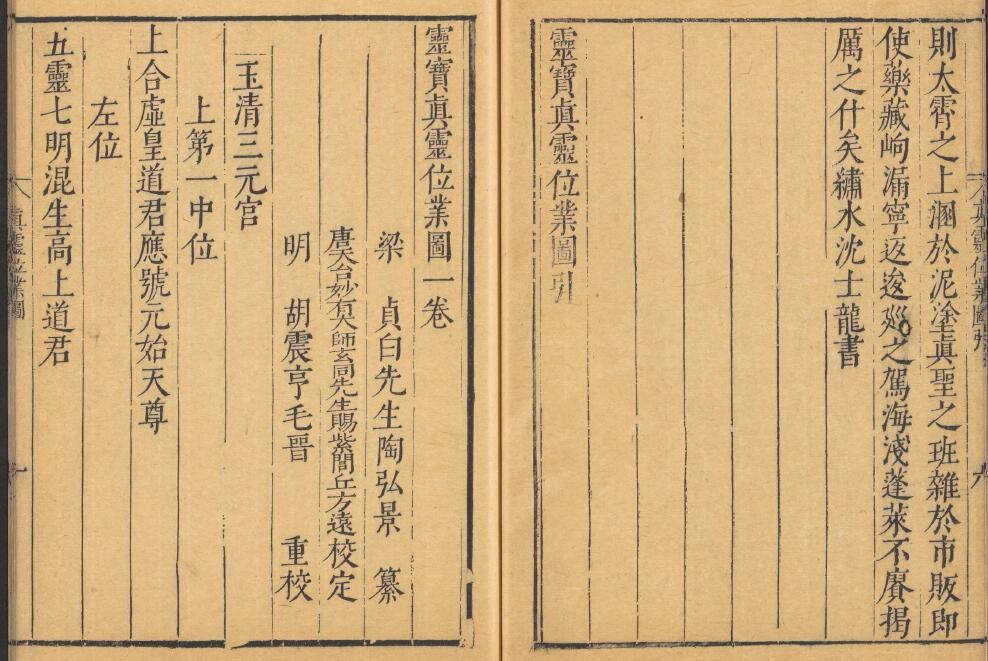 則太霄之上溷於泥塗真聖之班雜於市販即
使藥藏峋漏寧返逡㢠之駕海淺蓬萊不賡揭
厲之什矣繡水沈士龍書
靈寶真靈位業圖引
靈寶真靈位業圖一卷
梁 貞白先生陶弘景 纂
唐天台妙有大師玄同先生賜紫閭丘方遠校定
明 胡震亨毛晉 重校
玉清三元宮
上第一中位
上合虛皇道君應號元始天尊
左位
五靈七明混生高上道君
真靈位業圖